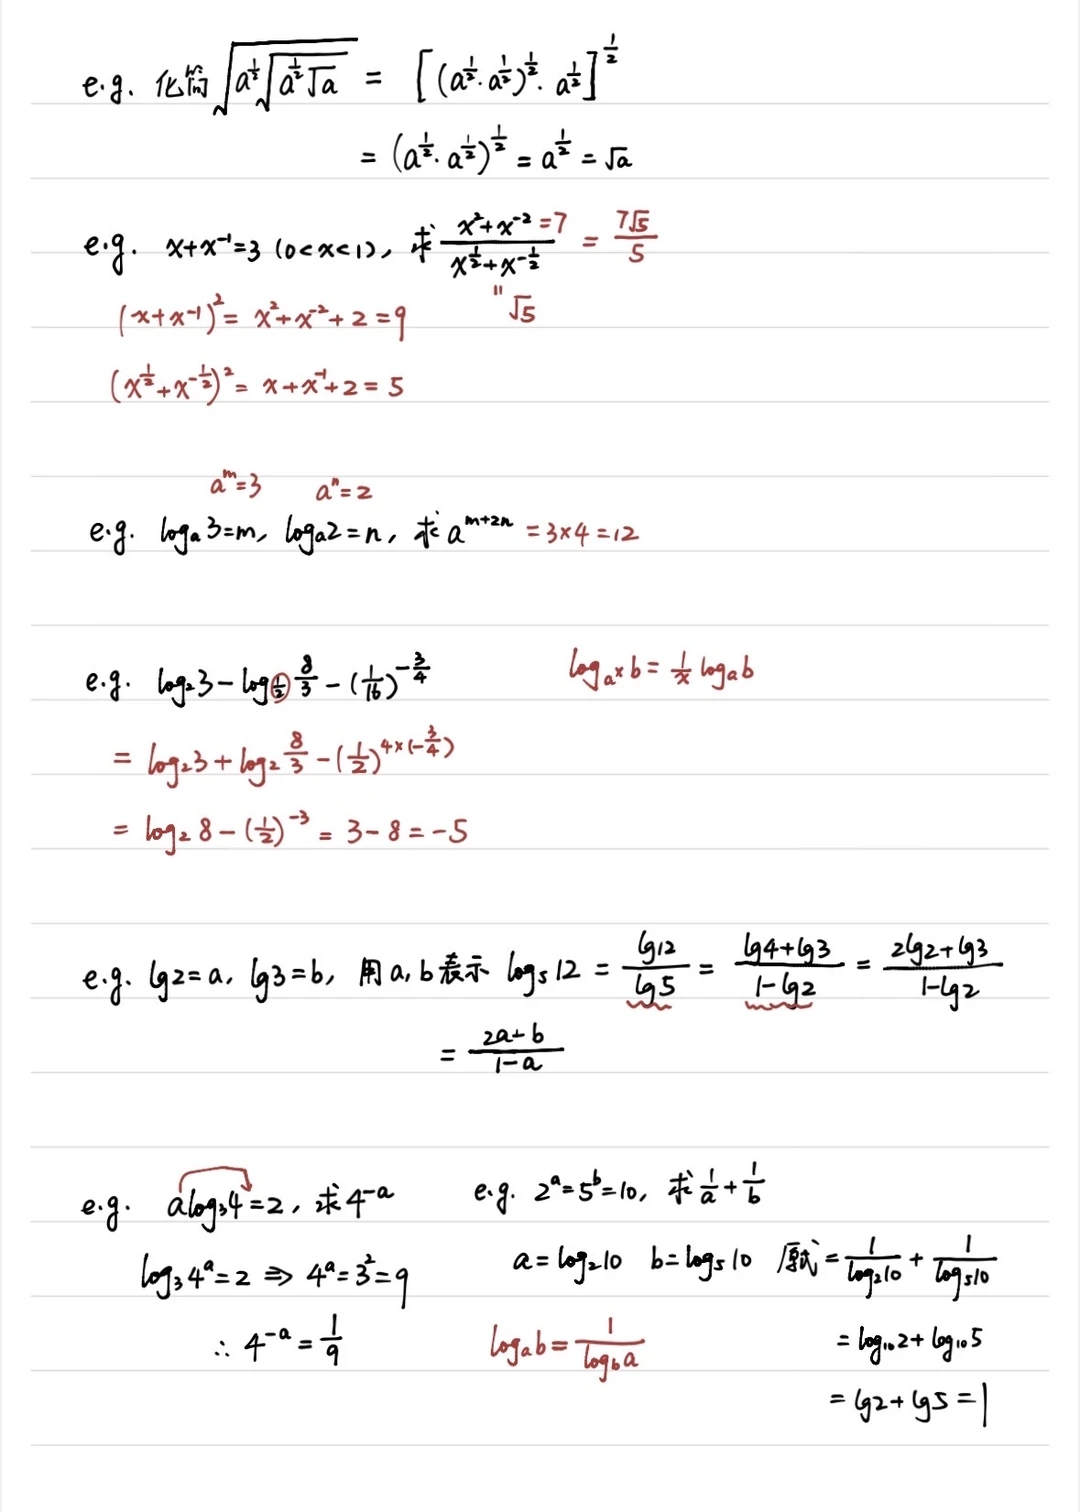 e.g. 化简 √(a^{1/2}√(a^{1/2}√a)) = [(a^{1/2}·a^{1/2})^{1/2}·a^{1/2}]^{1/2}
= (a^{1/2}·a^{1/2})^{1/2} = a^{1/2} = √a
e.g. x+x⁻¹=3 (0<x<1), 求 (x²+x⁻²)/(x^{1/2}+x^{-1/2}) =7 = 7√5/5
(x+x⁻¹)² = x²+x⁻²+2=9 " √5
(x^{1/2}+x^{-1/2})² = x+x⁻¹+2=5
aᵐ=3 aⁿ=2
e.g. logₐ3=m, logₐ2=n, 求 a^{m+2n} =3×4=12
e.g. log₂3-log_{1/2} 8/3 -(1/16)^{-3/4} log_{aˣ} b = 1/x logₐb
= log₂3+log₂ 8/3 -(1/2)^{4×(-3/4)}
= log₂8-(1/2)⁻³ = 3-8=-5
e.g. lg2=a, lg3=b, 用a,b表示 log₅12 = lg12/lg5 = (lg4+lg3)/(1-lg2) = (2lg2+lg3)/(1-lg2)
= (2a+b)/(1-a)
e.g. alog₃4=2, 求4^{-a} e.g. 2ᵃ=5ᵇ=10, 求 1/a + 1/b
log₃4ᵃ=2 ⇒ 4ᵃ=3²=9 a=log₂10 b=log₅10 原式= 1/log₂10 + 1/log₅10
∴ 4^{-a} = 1/9 logₐb = 1/log_b a = log₁₀2+log₁₀5
= lg2+lg5=1